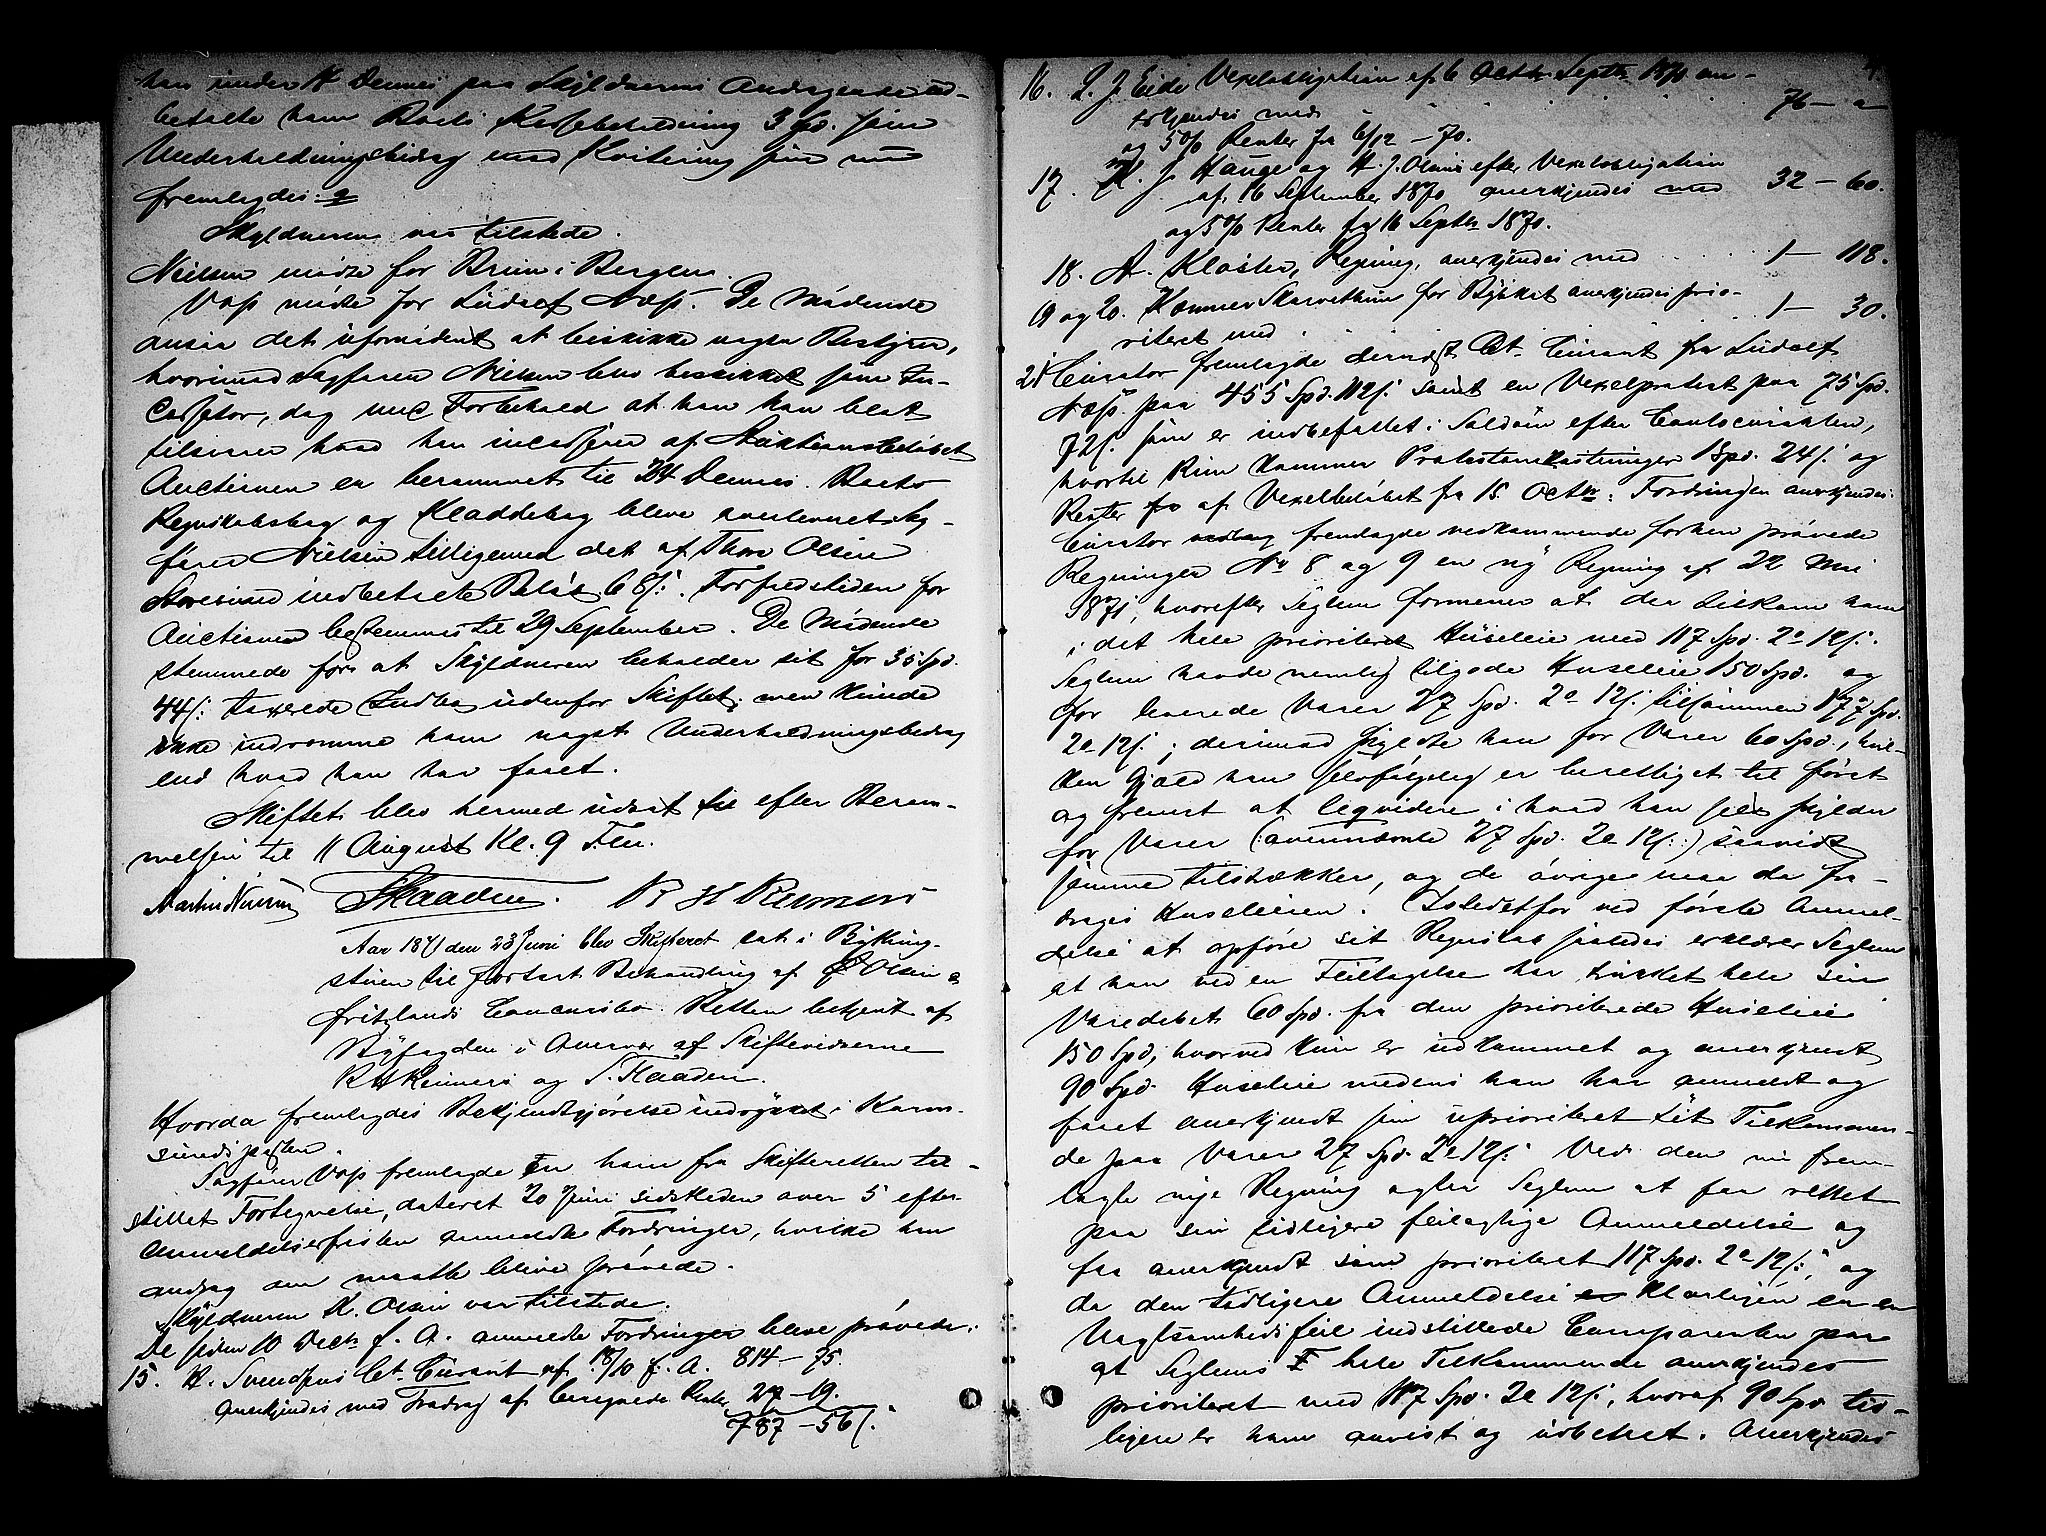 han under 14 Dennes paa Skyldnerens Andragende ud-
betalte ham Boets Kassebeholdning 3 Spd. som
Underholdningsbidrag mod Kvitering som nu
fremlagdes:
Skyldneren var tilstede.
Nielsen mødte for Brun i Bergen.
Voss mødte for Ludolf Næss. De Mødende
ansaa det ufornødent at beskikke nogen Bestyrer,
hvorimod Sagfører Nielsen blev beskikket som In-
cassator, dog med Forbehold at han kun blot
tilsvarer hvad han incasserer af Auktionsbeløbet
Auctionen er berammet til 24 Dennes. Boets
Regnskabsbog og Kladdebog bleve overleveret Sag-
fører Nielsen tilligemed det af Thore Olsen
Storesund indbetalte Beløb 68 s. Forfaldstiden for
Auctionen bestemmes til 29 September. De Mødende
stemmede for at Skyldneren beholder sit for 35 Spd.
44 s. taxerede Indbo udenfor Skiftet; men kunde
ikke indrømme ham noget Underholdningsbidrag
end hvad han har faaet.
Skiftet blev hermed udsat til efter Beram-
melsen til 11 August Kl. 9 Fm.
Martin Nielsen   S Haaden.   R H Reimers
Aar 1871 den 23 Juni blev Skifteret sat i Bykong-
stuen til fortsat Behandling af K Olsen
Fritzlands Concursbo. Retten betjent af
Byfogden i Overvær af Skiftevidnerne
R H Reimers og S. Haaden.
Hvorda fremlagdes Bekjendtgjørelse indrykket i Karm-
sundsposten.
Sagfører Voss fremlagde en ham fra Skifteretten til-
stillet Fortegnelse, dateret 20 Juni sidstleden over 5 efter
Anmeldelsesfristen anmeldte Fordringer, hvilke han
androg om maatte blive prøvede.
Skyldneren K. Olsen var tilstede.
De siden 10 Decbr f. A. anmeldte Fordringer bleve prøvede:
15. K. Svendsens Ct. Curant af 18/10 f. A. 814 – 75.
anerkjendes med Fradrag af beregnede Renter 27 – 19.
787 – 56 s.
16. L. J. Eide Vexelobligation af 6 Octbr Septbr 1870 an-
erkjendes med 76 – "
og 5 0/0 Renter fra 6/12 – 70.
17. J. Hauge og H. J. Olsens efter Vexelobligation
af 16 September 1870 anerkjendes med 32 – 60.
og 5 0/0 Renter fra 16 Septbr 1870.
18. A. Kloster, Regning, anerkjendes med 1 – 118.
19 og 20. Kæmner Skarvethun for Bykket anerkjendes prio-
riteret med 1 – 30.
21 Curator fremlagde dernæst Ct. Curant fra Ludolf
Næss paa 455 Spd. 112 s. samt en Vexelprotest paa 75 Spd.
72 s. som er indbefattet i Saldoen efter Contocuranten,
hvortil kun kommer Protestomkostninger 1 Spd. 24 s. og
Renter fra af Vexelbeløbet fra 15 Octbr. Fordringen anerkjendes.
Curator fremlagde vedkommende forhen prøvede
Regninger No 8 og 9 en ny Regning af 22 Mai
1871, hvorefter Seglem formener at der tilkom ham
i det hele prioriteret Husleie med 117 Spd. 2 o 12 s.
Seglem havde nemlig tilgode Husleie 150 Spd. og
for leverede Varer 27 Spd. 2 o 12 s. tilsammen 177 Spd.
2 o 12 s.; derimod skyldte han for Varer 60 Spd., hvil-
ken Gjæld han selvfølgelig er berettiget til først
og fremst at leqvidere i hvad han selv skylder
for Varer (ovennævnte 27 Spd. 2 o 12 s.) saavidt
samme tilstrækker, og de øvrige maa da fra-
drages Husleien. Istedetfor ved første Anmel-
delse at opføre sit Regnskab saaledes erklærer Seglem
at han ved en Feiltagelse har trukket hele sin
Varedebet 60 Spd. fra den prioriterede Husleie
150 Spd, hvorved kun er udkommet og anerkjendt
90 Spd. Husleie medens han har anmeldt og
faaet anerkjendt som uprioriteret sit Tilkommen-
de paa Varer 27 Spd. 2 o 12 s. Ved den nu frem-
lagte nye Regning agter Seglem at faa rettet
paa sin tidligere feilagtige Anmeldelse og
faa anerkjendt som prioriteret 117 Spd. 2 o 12 s., og
da den tidligere Anmeldelse er klarligen er en
Uagtsomhedsfeil indstillede Comparenten paa
at Seglems hele Tilkommende anerkjendes
prioriteret med 117 Spd. 2 o 12 s., hvoraf 90 Spd tid-
ligere er ham anvist og udbetalt. Anerkjendes